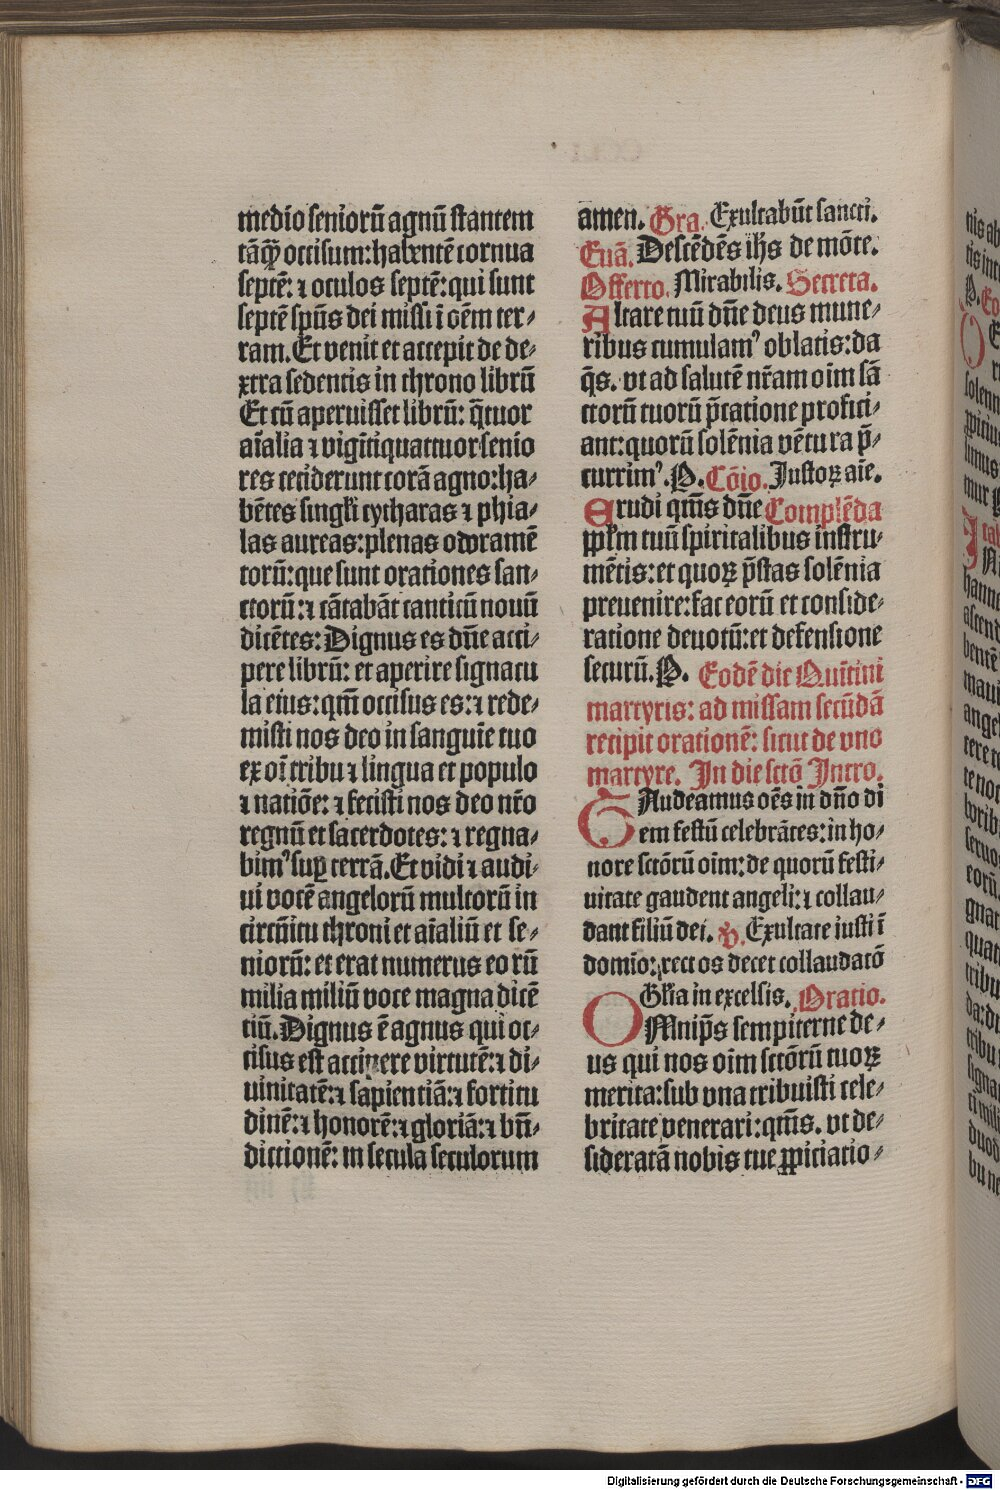 medio senioꝝ̄ agnū stantem
tāꝙ̄ occisum: habentē cornua
septē: ⁊ oculos septē: qui sunt
septē spūs dei missi ī oēm ter⸗
ram. Et venit et accepit de de⸗
xtra sedentis in throno librū
Et cū aperuisset librū: q̄tuor
aīalia ⁊ vigītiquattuor senio
res ceciderunt corā agno: ha⸗
bētes singĺi cytharas ⁊ phia⸗
las aureas: plenas odoramē
torū: que sunt orationes san⸗
ctorū: ⁊ cātabāt canticū nouū
dicētes: Dignus es dn̄e acci⸗
pere librū: et aperire signacu
la eius: qm̄ occisus es: ⁊ rede⸗
misti nos deo in sanguīe tuo
ex oī tribu ⁊ lingua et populo
⁊ natiōe: ⁊ fecisti nos deo nr̄o
regnū et sacerdotes: ⁊ regna⸗
bimꝰ suꝑ terrā. Et vidi ⁊ audi⸗
ui vocē angelorū multorū in
circūitu throni et aīaliū et se⸗
niorū: et erat numerus eorū
milia miliū voce magna dicē
tiū. Dignus ē agnus qui oc⸗
cisus est accipere virtutē: ⁊ di⸗
uinitatē: ⁊ sapientiā: ⁊ fortitu
dinē: ⁊ honorē: ⁊ gloriā: ⁊ bn̄⸗
dictionē: in secula seculorum
amen. Gra. Exultabūt sancti.
Euā. Descēdēs ihs de mōte.
Offerto. Mirabilis. Secreta.
Altare tuū dn̄e deus mune⸗
ribus cumulamꝰ oblatis: da
q̄s. vt ad salutē nr̄am oīm sā
ctorū tuorū p̄catione profici⸗
ant: quorū solēnia vētura p̄⸗
currimꝰ. P. Cōio. Iustoꝝ aīe.
Erudi qm̄s dn̄e Complēda
ppĺm tuū spiritalibus instru⸗
mētis: et quoꝝ p̄stas solēnia
preuenire: fac eorū et conside⸗
ratione deuotū: et defensione
securū. P. Eodē die Quītini
martyris: ad missam secūdā
recipit orationē: sicut de vno
martyre. In die sctō Intro.
GAudeamus oēs in dn̄o di
em festū celebrātes: in ho⸗
nore sctōrū oīm: de quorū festi⸗
uitate gaudent angeli: ⁊ collau⸗
dant filiū dei. v. Exultate iusti ī
domīo: rectos decet collaudatō
Gĺia in excelsis. Oratio.
OMnip̄s sempiterne de⸗
us qui nos oīm sctōrū tuoꝝ
merita: sub vna tribuisti cele⸗
britate venerari: qm̄s. vt de⸗
sideratā nobis tue ꝓpiciatio⸗
Digitalisierung gefördert durch die Deutsche Forschungsgemeinschaft - DFG